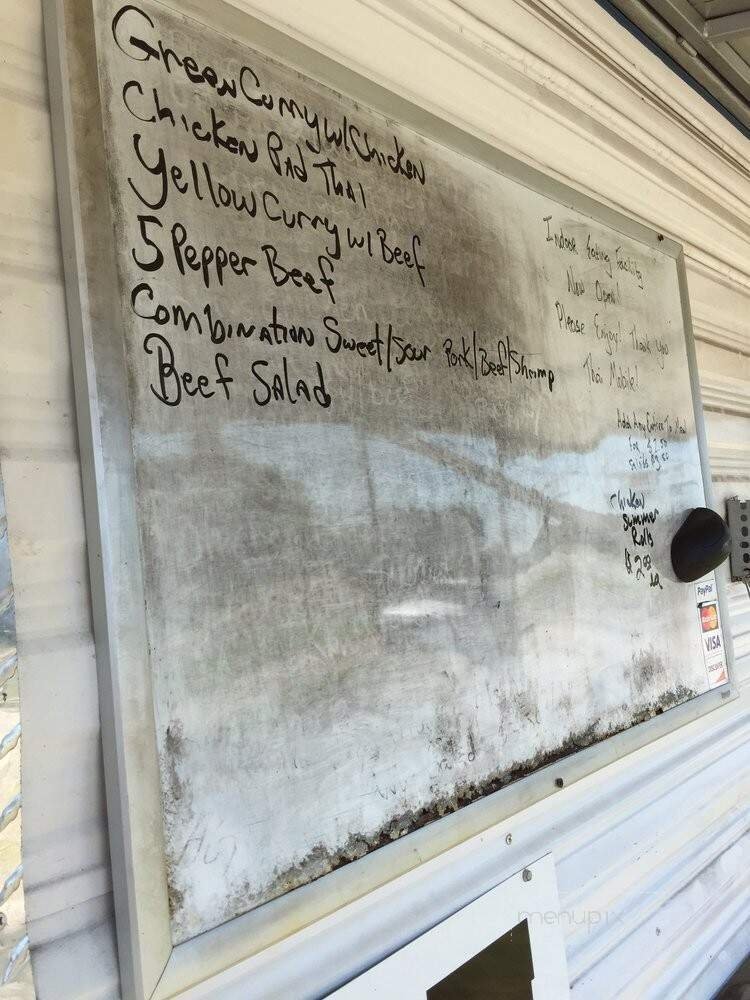 Green Curry w/ Chicken
Chicken Pad Thai
Yellow Curry w/ Beef
5 Pepper Beef
Combination Sweet/Sour Pork/Beef/Shrimp
Beef Salad
Eating Facility
Now Open!
Please Enjoy! Thank You
Thai Mobile!
Add Any Entree To
For $
Chicken
Summer
Rolls
$2.00
ea
PayPal
MasterCard
VISA
DISCOVER
menupix